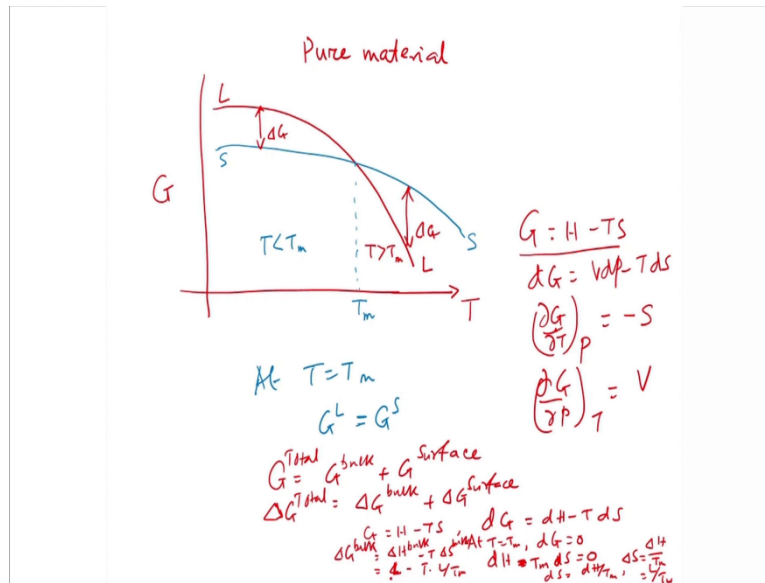 Pure material
L
ΔG
S
G
T<Tm
T>Tm
ΔG
S
L
Tm
T
G = H - TS
dG = Vdp - Tds
(∂G/∂T)P = -S
(∂G/∂P)T = V
At T=Tm
G^L = G^S
G^Total = G^bulk + G^Surface
ΔG^Total = ΔG^bulk + ΔG^Surface
G = H - TS, dG = dH - T dS
ΔG^bulk = ΔH^bulk - T ΔS^bulk At T=Tm, dG=0
= L - T. L/Tm dH - Tm dS = 0 ΔS = ΔH/Tm
dS = dH/Tm, = L/Tm